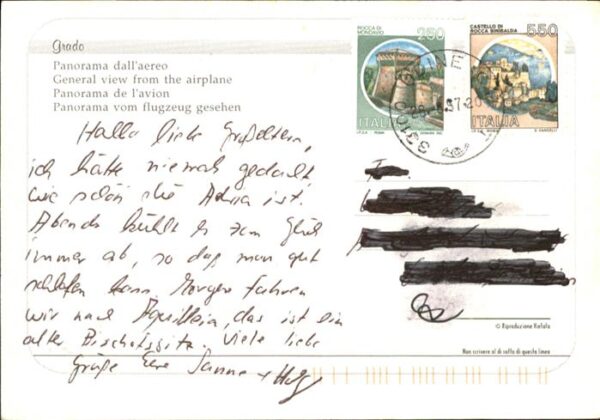 Grado
Panorama dall'aereo
General view from the airplane
Panorama de l'avion
Panorama vom flugzeug gesehen
ROCCA DI MONDAVIO
250
ITALIA
CASTELLO DI ROCCA SINIBALDA
550
ITALIA
33100 UDINE
Hallo liebe Großeltern,
ich hätte niemals gedacht
wie schön die Adria ist.
Abends kühlt es zum Glück
immer ab, so daß man gut
schlafen kann. Morgen fahren
wir nach Aquileia, das ist ein
alter Bischofssitz. Viele liebe
Grüße Eure Sanne +
© Riproduzione Vietata
Non scrivere al di sotto di questa linea